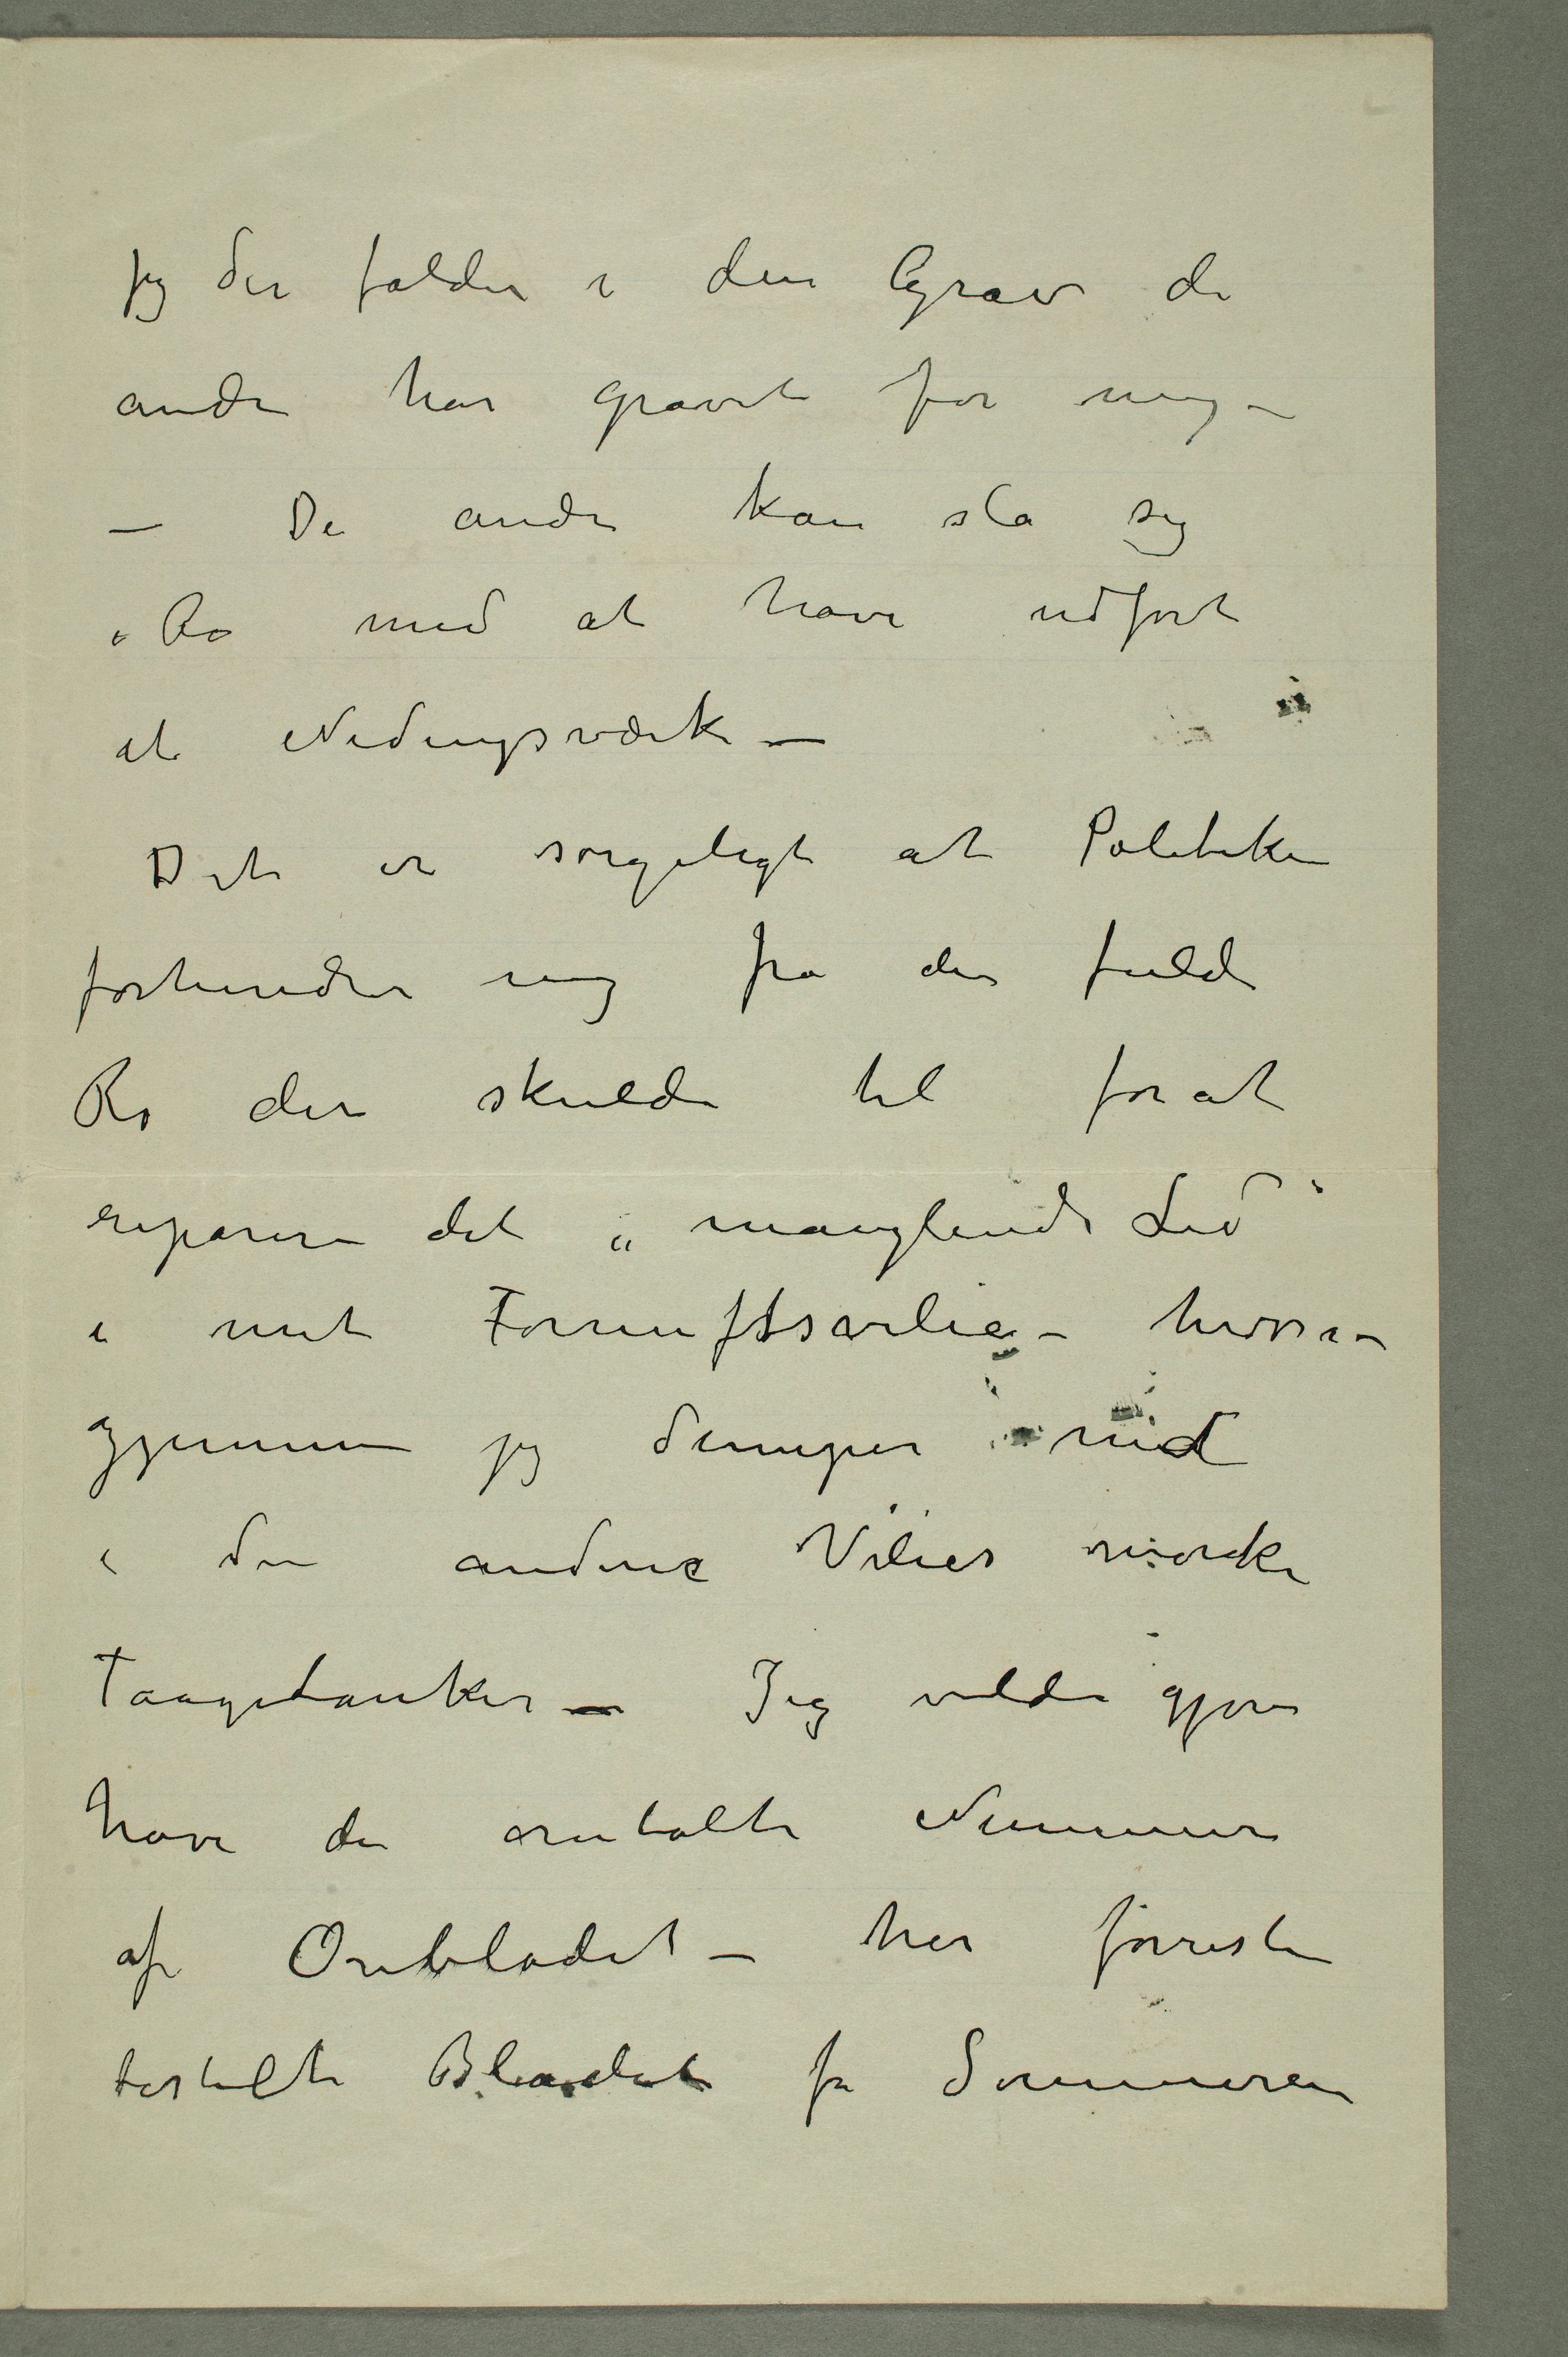 jeg der falder i den Grav de
andre har gravet for mig –
– De andre kan slå sig
i Ro med at have udført
et Nidingsværk –
Det er sørgeligt at Politiken
forhindrer mig fra den fulde
Ro der skulde til for at
reparere det „manglende Led“
i mit Fornuftsvilie – hvori-
gjennem jeg dumper ned
i den andens Vilies mørke
Taagetanker – Jeg vilde gjerne
have de omtalte Nummere
af Orebladet – har forresten
bestilt Bladet fra Sommeren